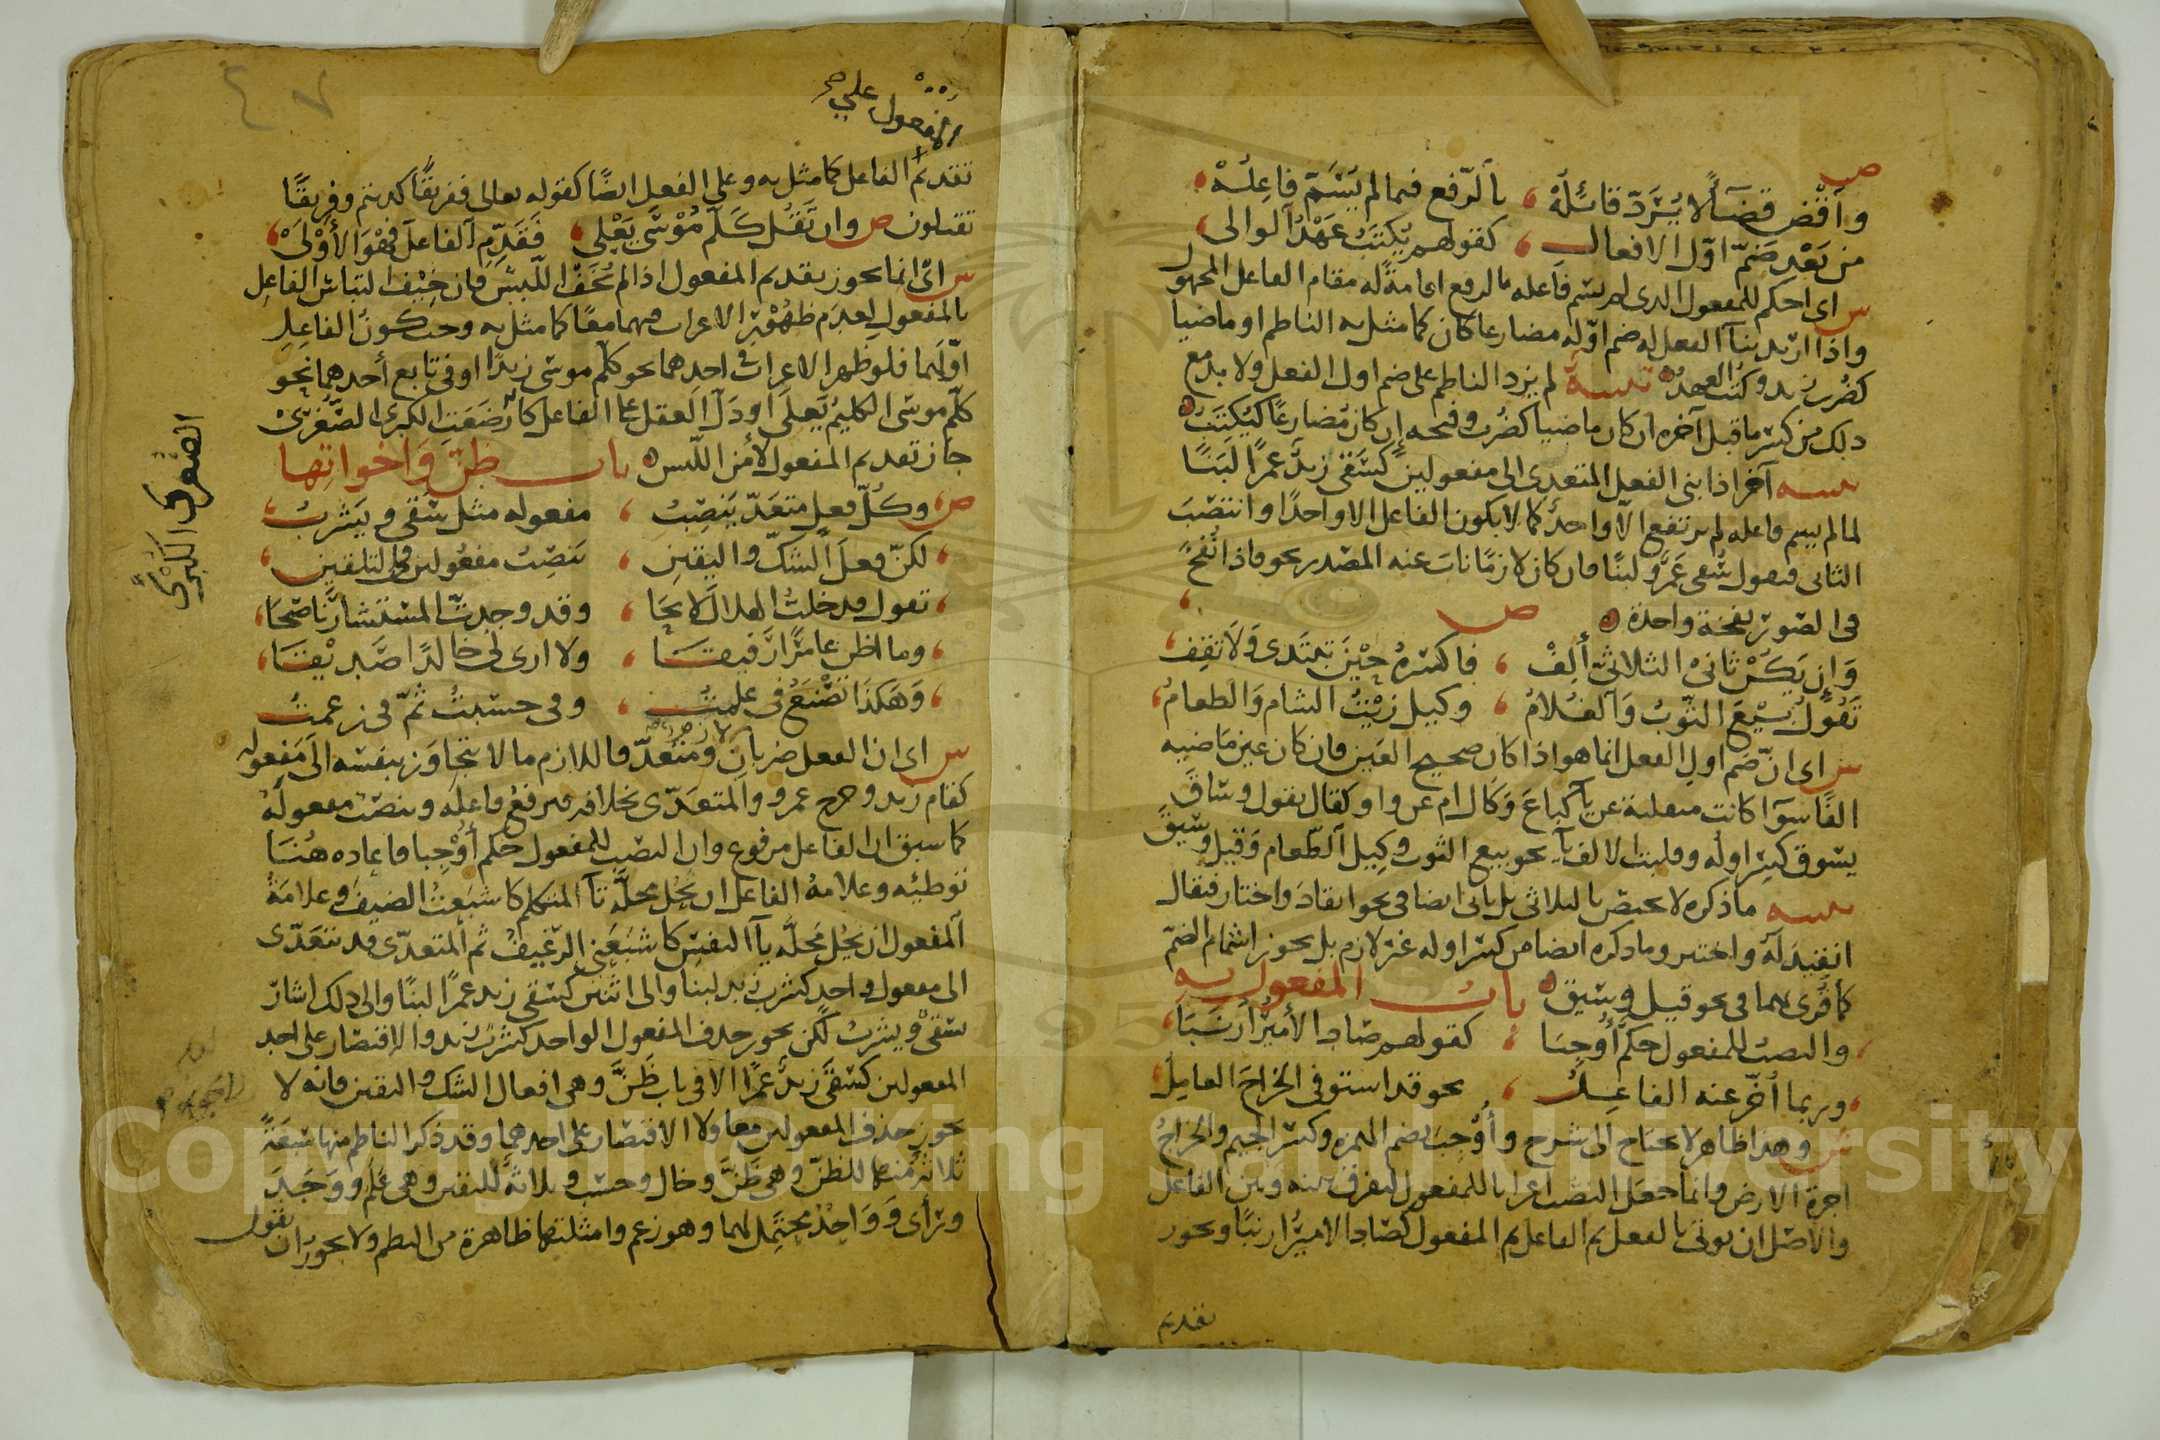 ص
واقْض قضآءً لا يُرَدّ قائلهْ بالرّفع فيما لم يُسَمّ فاعِلُهْ
من بَعْد ضَمّ اوّل الافعالِ كقولهم يُكتَبُ عَهْدُ الوالى
س اى احكم للمفعول الدى لم يسم فاعله بالرفع اقامةً له مقام الفاعل المجهول
واذا اريد بنآ الفعل له ضم اوّله مضارعا كان كما مثل به الناظم او ماضيا
كضُرب زيد وكُتب العهدُ تنبيه لم يزد الناظم على ضم اول الفعل ولا بد مع
دلك من كسر ما قبل آخره ان كان ماضيا كضُرب وفتحه ان كان مُضارعًا كيُكتَبُ
تنبيه آخر اذا بنى الفعل المتعدى الى مفعولين كسَقى زيدٌ عمرًا لبَنًا
لما لم يسم فاعله لم يرتفع الا واحدٌ كما لا يكون الفاعل الا واحدًا وانتصَبَ
الثانى فيقول سُقى عَمرٌو لبنًا فان كان لازمًا ناب عنه المصدر نحو فاذا نُفخَ
فى الصّور نفخة واحدة ص
وَإن يَكُنْ ثانىْ الثلاثىّ ألِفْ فاكسِرهُ حِيْنَ تبتَدى وَلَا تقِفْ
تَقُولُ بِيْعَ الثّوبُ وَالغُلامُ وكيلَ زيْتُ الشام وَالطعامُ
س اى انّ ضم اول الفعل انما هو اذا كان صحيح العَين فان كان عين ماضيه
الفًا سوآ كانت منقلبة عن يآ كباعَ وَكال ام عن واو كقال يقول وسَاقَ
يسوق كسِر اوله وقلبت الالف يآ نحو بيع الثوب وكِيل الطّعام وَقيل وسيقَ
تنبيه ما ذكره لا يختص بالثلاثى بل ياتى ايضا فى نحو انقادَ واختار فيقال
انقِيدَ لهُ واختير وما دكره ايضا من كسر اوله غير لازم بل يجوز اشمام الضمّ
كما قُرى بهما فى نحو قيل وسِيق بابُ المفعول به
والنصبُ للمفعول حكمٌ أوْجِبَا كقولهم صَادا الأميرُ أرنَبَا
وربما أخّر عنه الفاعِلُ نحو قد استوفى الخراجَ العامِلُ
ش وهدا ظاهر لا يحتاج الى شرح وأُوْجبَ بضم الهمزه وكسر الجيم والخراجُ
اجرة الارض وانما جعَل النصب اعرابا للمفعول ليفرق بينه وبين الفاعل
والاصْل ان يوتى بالفعل ثم الفاعل ثم المفعول كصَادا الاميرُ ارنبًا ويجوز
تقديم
المفعول على صح
تقديم الفاعل كما مثل به وعلى الفعل ايضًا كقوله تعالى ففريقًا كذبتم وفريقًا
تقتلون ص وان تَقُل كَلّم مُوْسَى يَعْلى فَقَدِّمِ الفاعلَ فهْوَ الأَوْلَىْ
س اىْ انما يجوز تقديم المفعول اذا لم يُخَفْ اللّبسُ فان خِيْفَ التباسُ الفاعلِ
بالمفعول لعدَم ظهُوْر الاعراب فيهما معًا كما مثل به وجب كَونُ الفاعِلِ
اوّلَهما فلو ظهر الاعراب فى احدهما نحو كلّم موسى زيدًا او فى تابع أحدهما نحو
كلّم موسى الكليمُ يَعلَى أو دَلّ العقل على الفاعل كأرضَعَتِ الكبرى الصّغرىْ
جاز تقديم المفعول لأمن اللّبس باب ظنّ وَاخواتِها
ص وكُلّ فعلٍ متعَدّ يَنصِبُ مفعوله مثل سَقى ويَشربُ
لكنّ فعلَ الشكّ واليقين يَنصِبُ مفعُولين فى التلقين
تقول قد خلتُ الهلالَ لائحَا وقد وجدتّ المستشارَ ناصِحَا
وما اظن عامرًا رَفيقَا ولا ارى لى خالدًا صَديقَا
وَهَكذَا تَصْنَعُ فى علمتُ وفى حسِبتُ ثمّ فى زعمتُ
لازم صح
س اى ان الفعل ضربانِ ومتعدّ فاللازم ما لا يتجاوَز بنفسه الى مَفعوله
كقام زيد وخرج عمرو والمتعدّى بخلافه فيرفعُ فاعله وينصبُ مفعولهُ
كما سبق ان الفاعل مرفوع وان النصب للمفعول حكم أوْجِبا فاعاده هُنَا
توطئه وعلامةُ الفاعل ان يحُل محلّه تآ المتكلم كاشبَعتُ الضيفَ وعلامةُ
المفعول ان يحُل محلّه يآ النفسِ كاشبَعَنى الرّغيفُ ثم المتعدّى قد يتعَدّى
الى مفعول واحد كشرب زيد لبنا والى اثنين كسَقى زيد عمرًا لبنًا والى دلك اشار
سقىْ ويشربُ لكن يجوز حذف المفعول الواحد كشربَ زيد والاقتصار على احد
المفعولين كسَقَى زيدٌ عمرًا الا فى باب ظنَّ وهى افعال الشك واليقين فانه لا
يجوز حذف المفعولين معا ولا الاقتصار على احدهما وقد ذكر الناظم منها سَبعَةً
ثلاثة منها للظنّ وهى ظنَّ وخال وحسب وثلاثة لليقين وهى عَلم ووَجَدَ
ورأى وَوَاحِدٌ محتمل لهما وهو زعم وامثلتها ظاهرة من النظم ولا يجوز ان تقول
الصغرى الكُبرى
٤٧